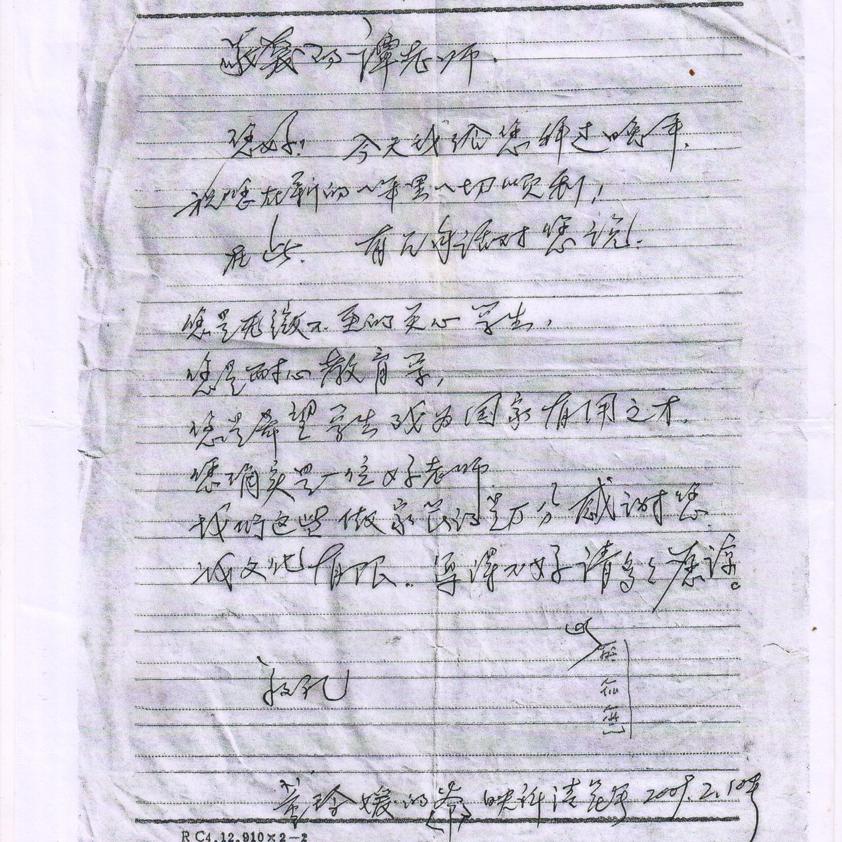 敬爱的谭老师.
您好! 今天我给您拜过晚年.
祝您在新的一年里一切顺利!
在此. 有几句话对您说.
您是无微不至的关心学生,
您是耐心教育学,
您是希望学生成为国家有用之才.
您确实是一位好老师
我们这些做家长的是万分感谢您
我文化有限. 写得不好请多多原谅。
此
敬礼
2009.2.10号
R C4.12.910×2-2